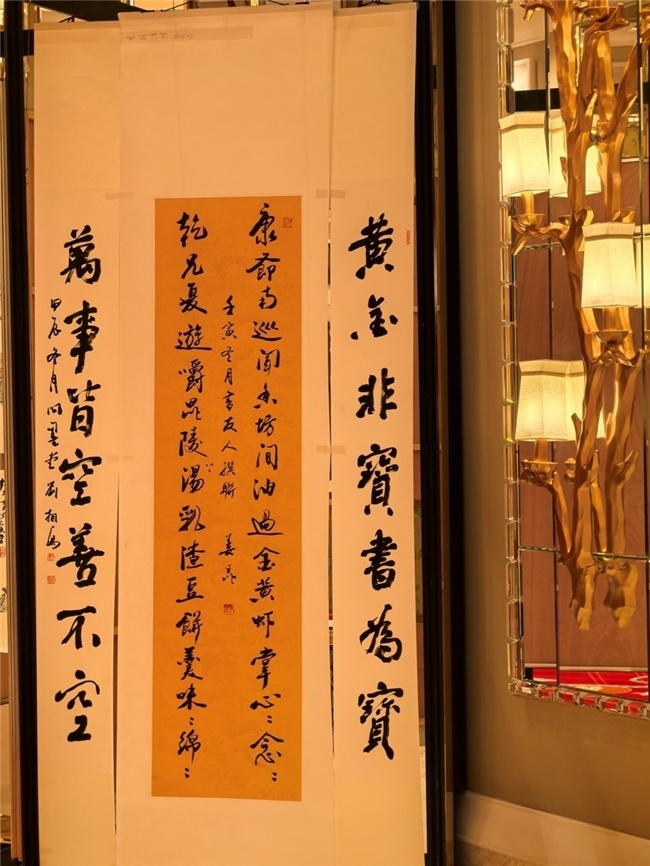 黄金非寶書為寶
康節南巡聞香坊間油過金黄虾掌心〻念〻
乾兄夏遊嚼毘陵湯〻乳渣豆餅美味〻綿〻
壬寅冬月書友人撰聯 姜昆
萬事皆空善不空
甲辰冬月問墨堂劉相